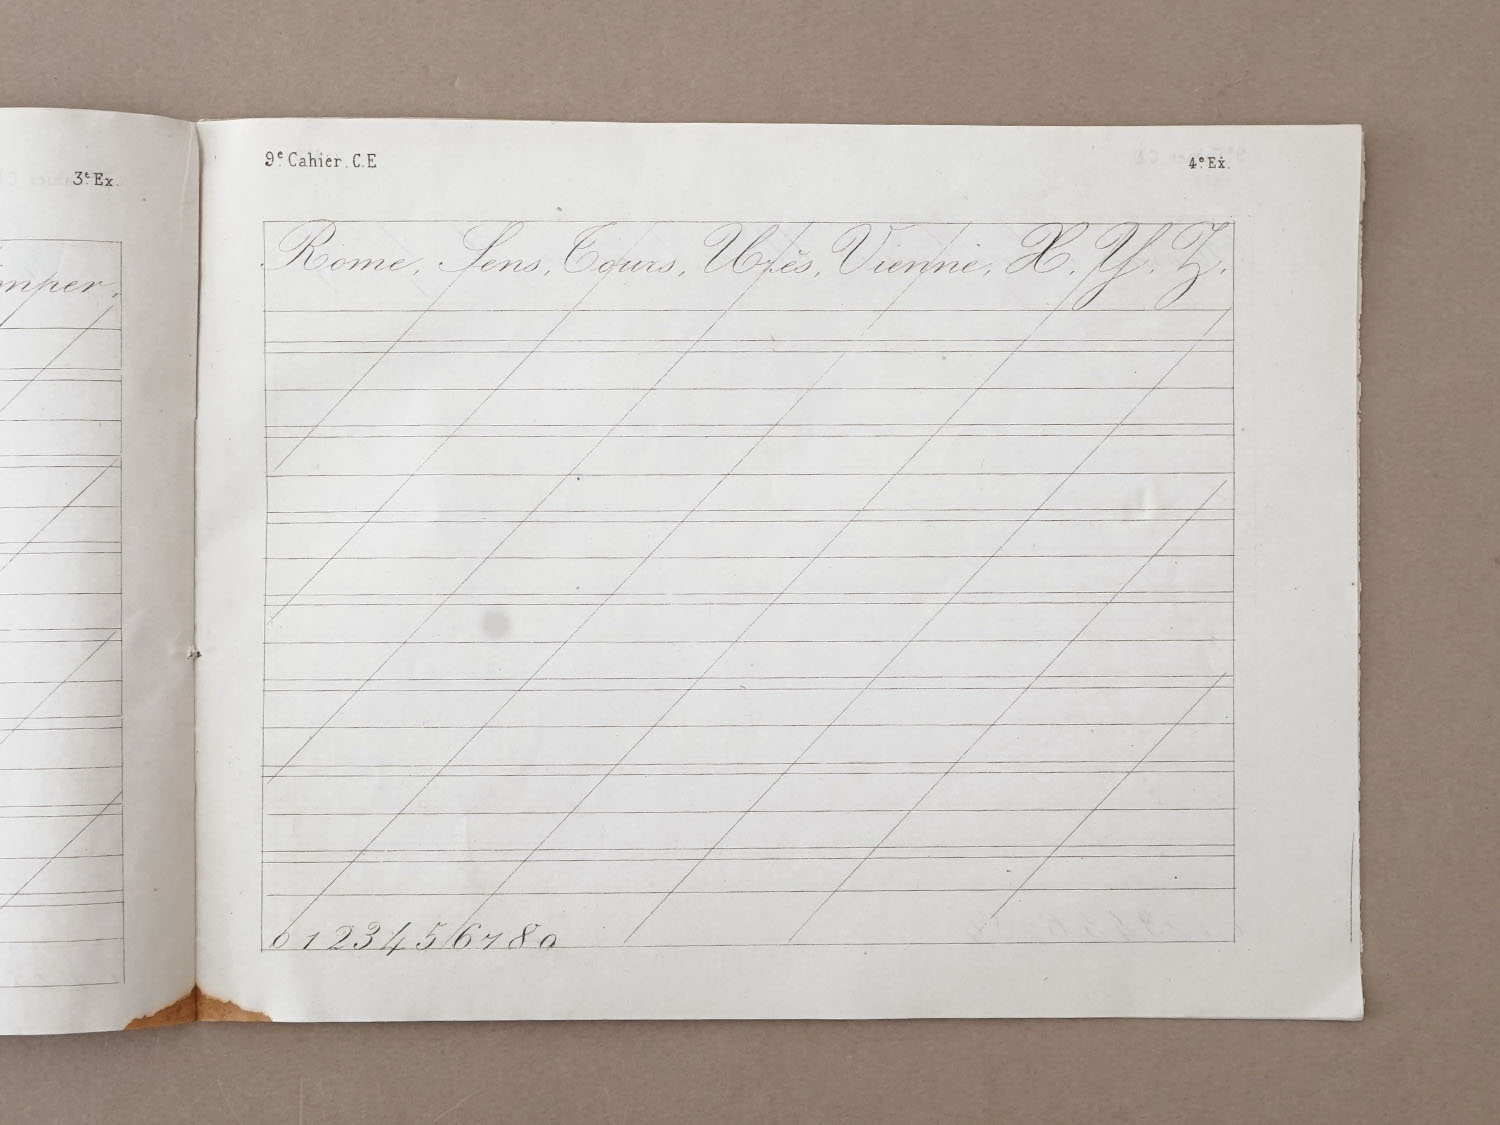 3e Ex.
mper.
9e Cahier. C.E
4e Ex.
Rome, Sens, Tours, Uzès, Vienne, X. Y. Z.
0 1 2 3 4 5 6 7 8 9